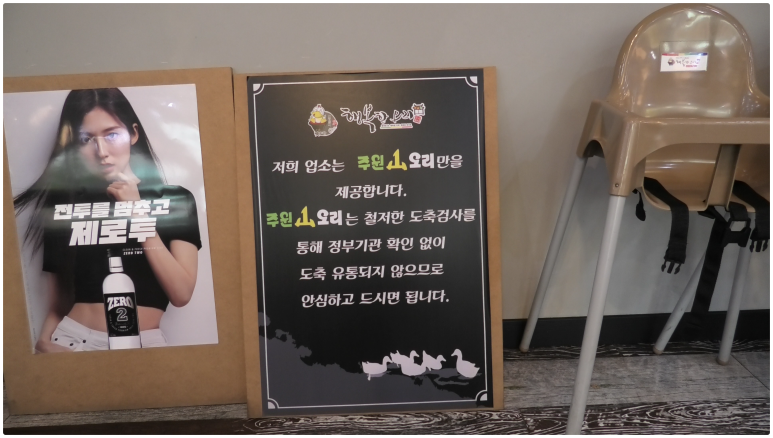 전투를 멈추고
제로투
ZERO
2
저희 업소는 주원山오리만을
제공합니다.
주원山오리는 철저한 도축검사를
통해 정부기관 확인 없이
도축 유통되지 않으므로
안심하고 드시면 됩니다.